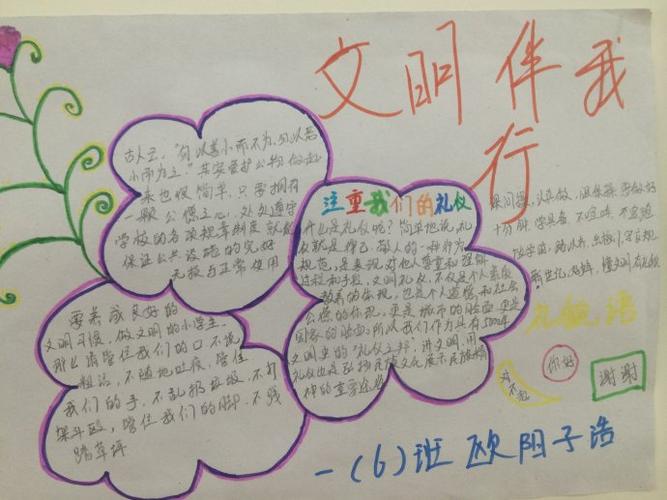 文明伴我
行
古人云，"勿以善小而不为，勿以恶
小而为之。"其实爱护公物做起
来也很简单，只需拥有
一颗公德之心，处处遵守
学校的各项规章制度就能
保证公共设施的完好
无损与正常使用
要养成良好的
文明习惯，做文明的小学生。
那么请管住我们的口不说
粗话，不随地吐痰，管住
我们的手，不乱扔垃圾，不打
架斗殴，管住我们的脚，不践
踏草坪
注重我们的礼仪
什么是礼仪呢？简单地说，礼
仪就是律己、敬人的一种行为
规范，是表现对他人尊重和理解
过程和手段，文明礼仪，不仅是个人素质
教养的体现，也是个人道德和社会
公德的体现，更是城市的脸面，更是
国家的脸面，所以我们作为具有5000年
文明史的"礼仪之邦"，讲文明，用
礼仪也是弘扬民族文化展示民族精
神的重要途径
课间操，认真做，
十分钟，
礼貌语
对不起
你好
谢谢
一(6)班 欧阳子浩